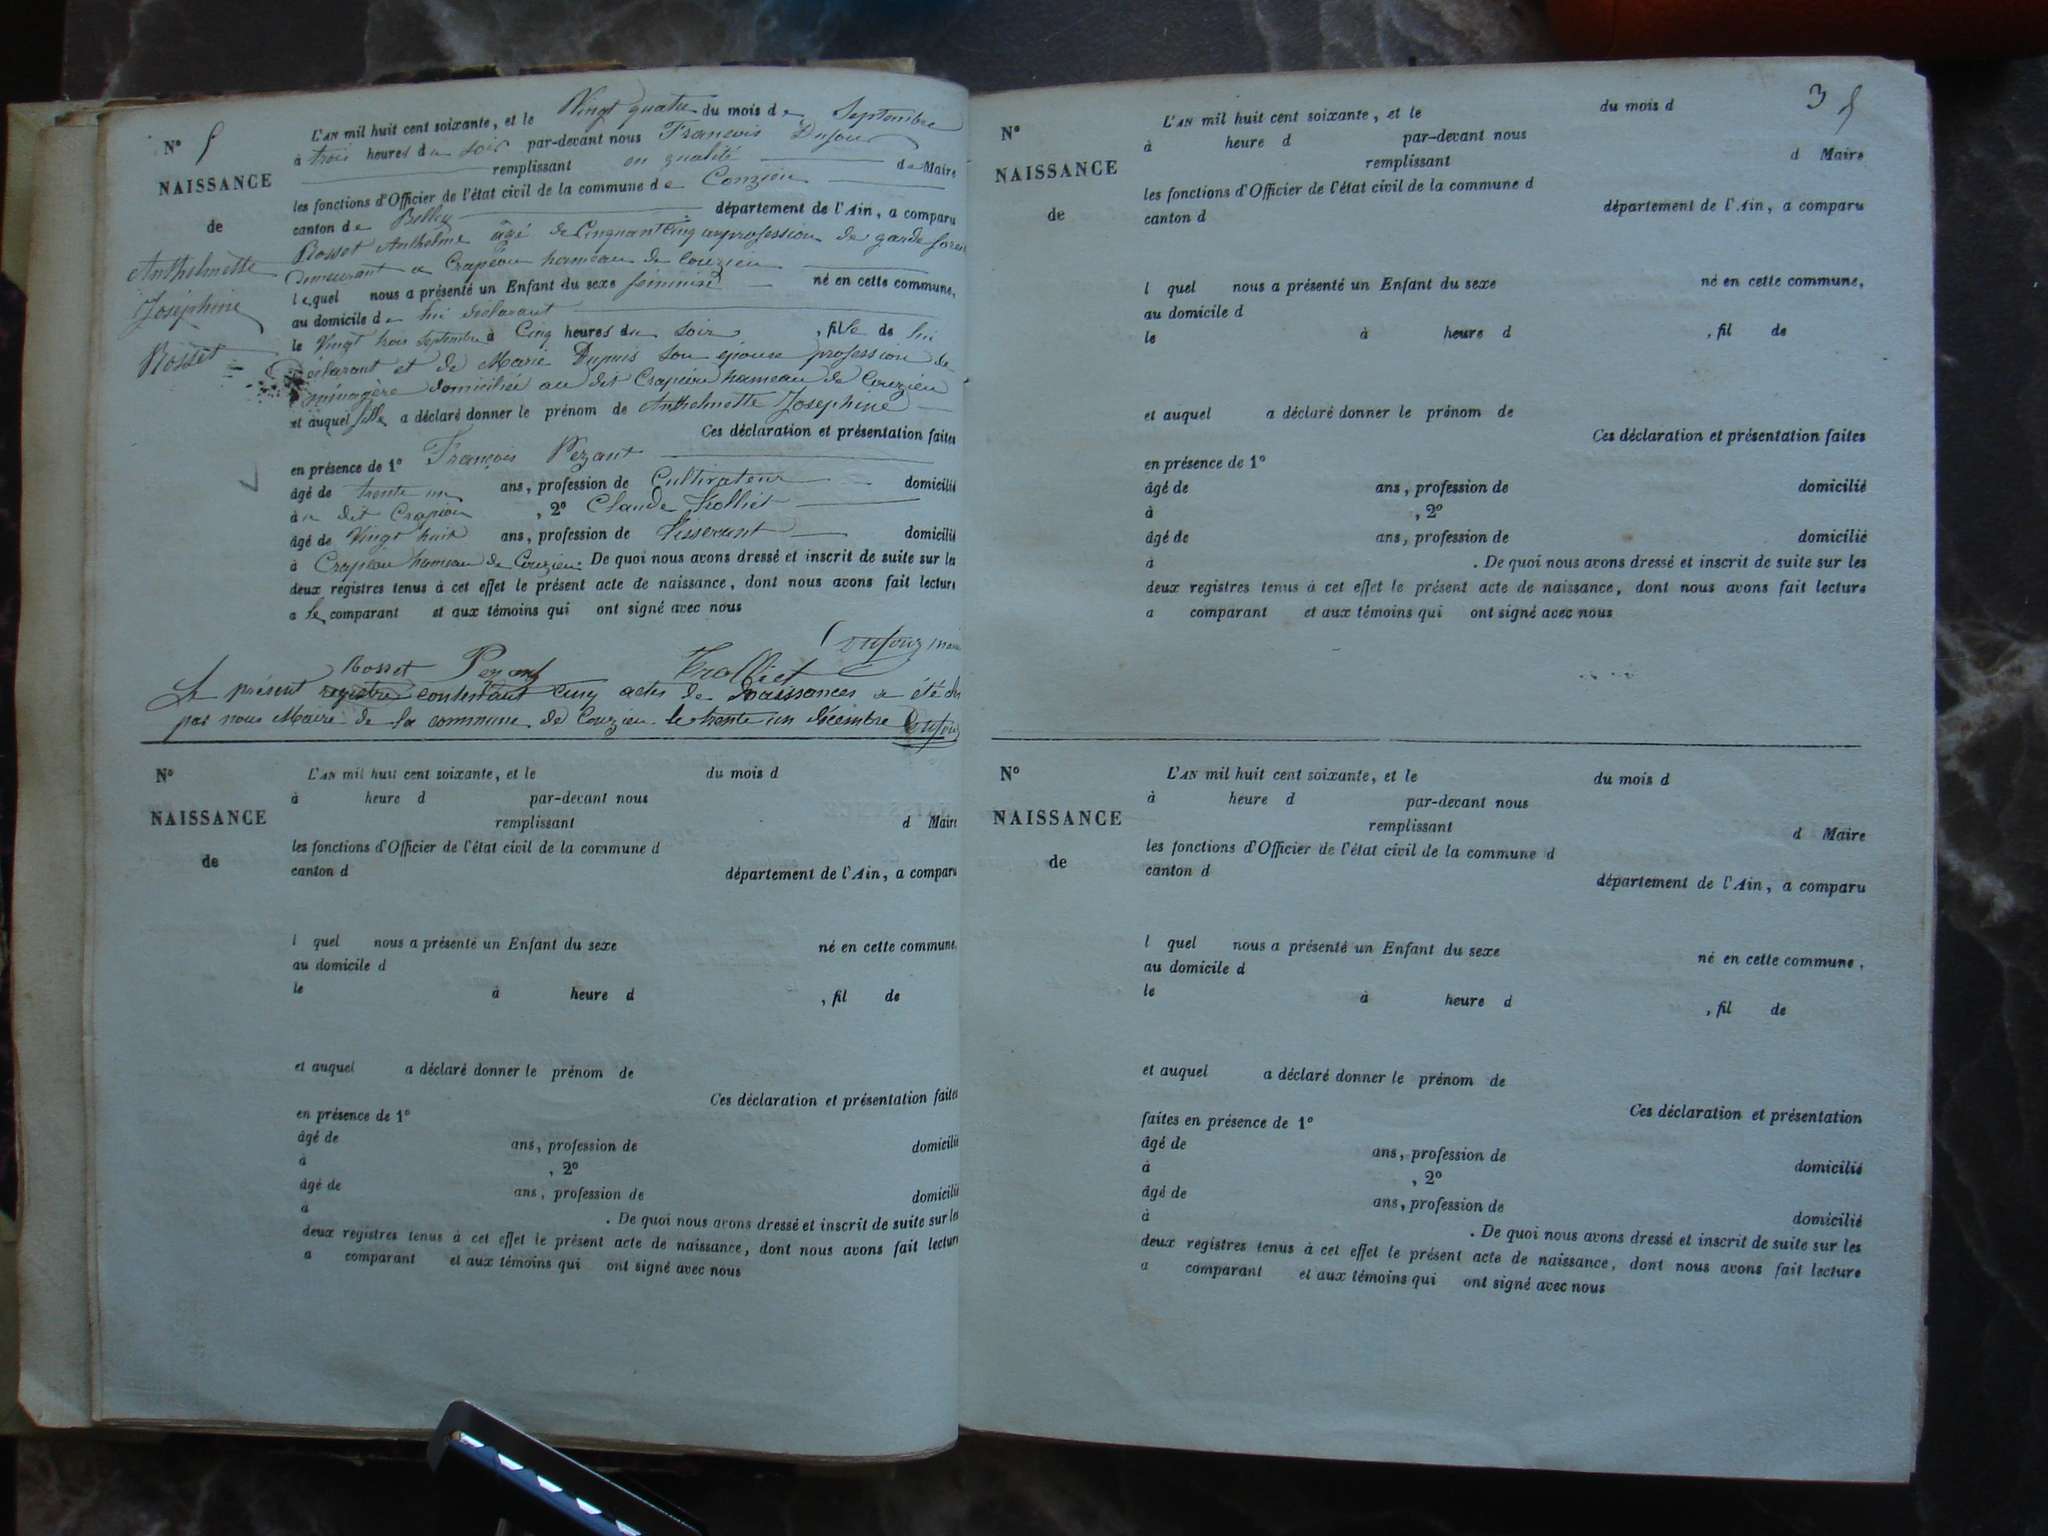 N° 5
NAISSANCE
de
Anthelmette
Joséphine
Rosset
L'AN mil huit cent soixante, et le Vingt quatre du mois de Septembre
à trois heures du soir par-devant nous François Dufour
remplissant en qualité de Maire
les fonctions d'Officier de l'état civil de la commune de Conzieu
canton de Belley département de l'Ain, a comparu
Rosset Anthelme agé de Cinquante Cinq ans profession de garde
demeurant a Crapéou hameau de Conzieu
lequel nous a présenté un Enfant du sexe féminin né en cette commune,
au domicile de lui déclarant
le Vingt trois Septembre à Cinq heures du soir, fille de lui
déclarant et de Marie Dupuis son épouse profession de
ménagère domiciliée au dit Crapéou hameau de Conzieu
et auquel fille a déclaré donner le prénom de Anthelmette Josephine
Ces déclaration et présentation faites
en présence de 1° François Pezant
âgé de trente un ans, profession de Cultivateur domicilié
au dit Crapéou, 2° Claude Trolliet
âgé de Vingt huit ans, profession de Tisserant domicilié
à Crapéou hameau de Conzieu. De quoi nous avons dressé et inscrit de suite sur les
deux registres tenus à cet effet le présent acte de naissance, dont nous avons fait lecture
a le comparant et aux témoins qui ont signé avec nous
Dufour maire
Rosset Pezant Trolliet
Le présent registre contenant cinq actes de naissances a été
par nous Maire de la commune de Conzieu le trente un décembre Dufour
N°
NAISSANCE
de
L'AN mil huit cent soixante, et le du mois d
à heure d par-devant nous
remplissant d Maire
les fonctions d'Officier de l'état civil de la commune d
canton d département de l'Ain, a comparu
l quel nous a présenté un Enfant du sexe né en cette commune,
au domicile d
le à heure d , fil de
et auquel a déclaré donner le prénom de
Ces déclaration et présentation faites
en présence de 1°
âgé de ans, profession de domicilié
à , 2°
âgé de ans, profession de domicilié
à . De quoi nous avons dressé et inscrit de suite sur les
deux registres tenus à cet effet le présent acte de naissance, dont nous avons fait lecture
a comparant et aux témoins qui ont signé avec nous
3
N°
NAISSANCE
de
L'AN mil huit cent soixante, et le du mois d
à heure d par-devant nous
remplissant d Maire
les fonctions d'Officier de l'état civil de la commune d
canton d département de l'Ain, a comparu
l quel nous a présenté un Enfant du sexe né en cette commune,
au domicile d
le à heure d , fil de
et auquel a déclaré donner le prénom de
Ces déclaration et présentation faites
en présence de 1°
âgé de ans, profession de domicilié
à , 2°
âgé de ans, profession de domicilié
à . De quoi nous avons dressé et inscrit de suite sur les
deux registres tenus à cet effet le présent acte de naissance, dont nous avons fait lecture
a comparant et aux témoins qui ont signé avec nous
N°
NAISSANCE
de
L'AN mil huit cent soixante, et le du mois d
à heure d par-devant nous
remplissant d Maire
les fonctions d'Officier de l'état civil de la commune d
canton d département de l'Ain, a comparu
l quel nous a présenté un Enfant du sexe né en cette commune,
au domicile d
le à heure d , fil de
et auquel a déclaré donner le prénom de
Ces déclaration et présentation
faites en présence de 1°
âgé de ans, profession de domicilié
à , 2°
âgé de ans, profession de domicilié
à . De quoi nous avons dressé et inscrit de suite sur les
deux registres tenus à cet effet le présent acte de naissance, dont nous avons fait lecture
a comparant et aux témoins qui ont signé avec nous